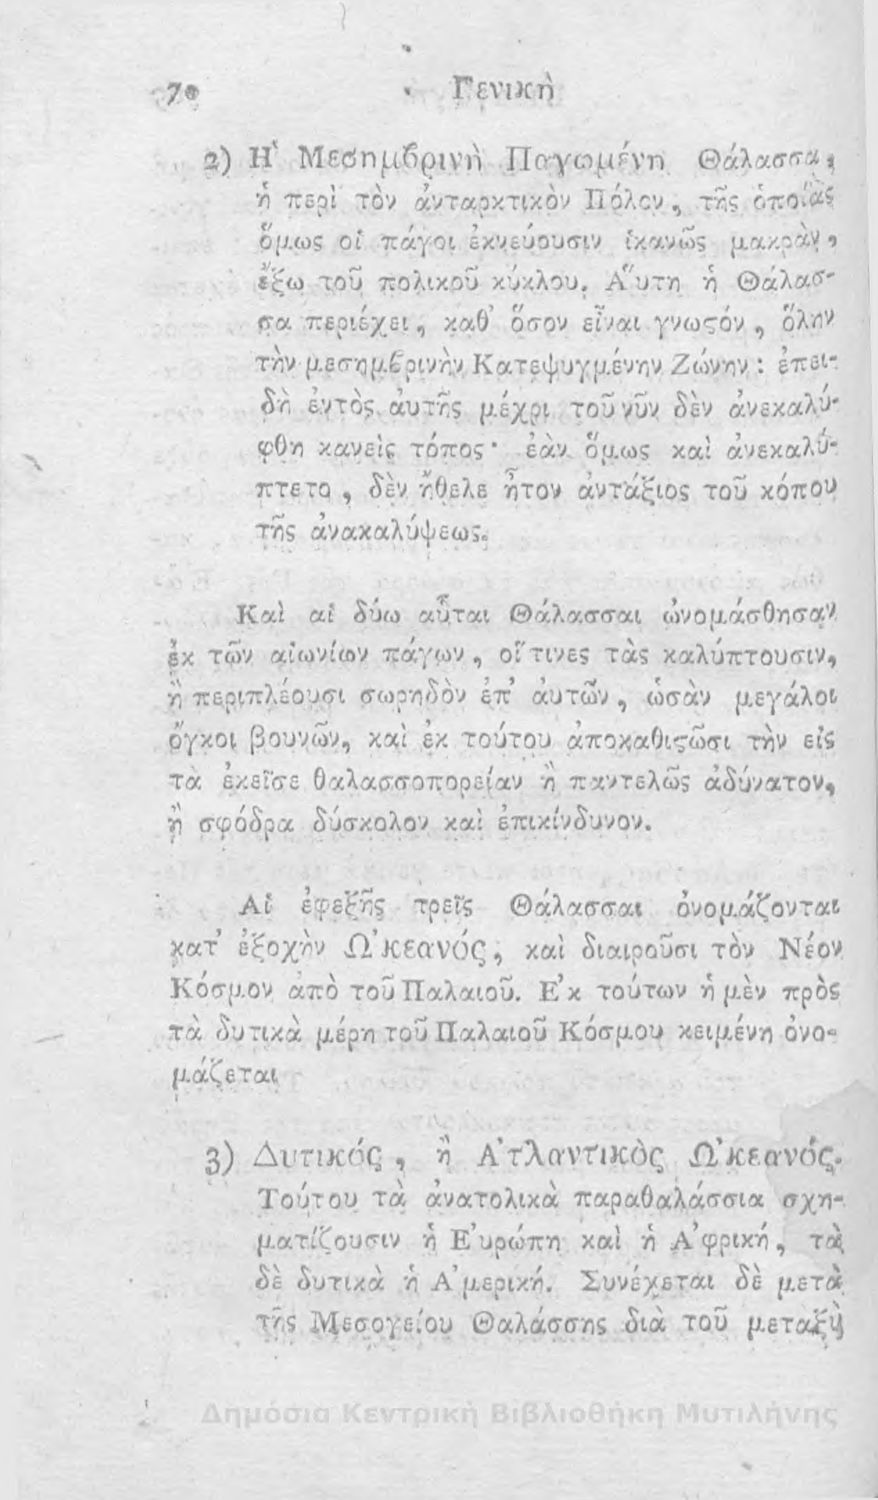 70 Γενικὴ
2) Ἡ Μεσημβρινὴ Παγωμένη Θάλασσα,
ἡ περὶ τὸν ἀνταρκτικὸν Πόλον, τῆς ὁποίας
ὅμως οἱ πάγοι ἐκνεύουσιν ἱκανῶς μακρὰν,
ἔξω τοῦ πολικοῦ κύκλου. Αὕτη ἡ Θάλασ-
σα περιέχει, καθ' ὅσον εἶναι γνωϛόν, ὅλην
τὴν μεσημβρινὴν Κατεψυγμένην Ζώνην: ἐπει-
δὴ ἐντὸς ἀυτῆς μέχρι τοῦ νῦν δὲν ἀνεκαλύ-
φθη κανεὶς τόπος· ἐὰν ὅμως καὶ ἀνεκαλύ-
πτετο, δὲν ἤθελε ἦτον ἀντάξιος τοῦ κόπου
τῆς ἀνακαλύψεως.
Καὶ αἱ δύω αὗται Θάλασσαι ὠνομάσθησαν
ἐκ τῶν αἰωνίων πάγων, οἵτινες τὰς καλύπτουσιν,
ἢ περιπλέουσι σωρηδὸν ἐπ' ἀυτῶν, ὡσὰν μεγάλοι
ὄγκοι βουνῶν, καὶ ἐκ τούτου ἀποκαθιϛῶσι τὴν εἰς
τὰ ἐκεῖσε θαλασσοπορείαν ἢ παντελῶς ἀδύνατον,
ἢ σφόδρα δύσκολον καὶ ἐπικίνδυνον.
Αἱ ἐφεξῆς τρεῖς Θάλασσαι ὀνομάζονται
κατ' ἐξοχὴν Ὠκεανός, καὶ διαιροῦσι τὸν Νέον
Κόσμον ἀπὸ τοῦ Παλαιοῦ. Ἐκ τούτων ἡ μὲν πρὸς
τὰ δυτικὰ μέρη τοῦ Παλαιοῦ Κόσμου κειμένη ὀνο-
μάζεται
3) Δυτικός, ἢ Ἀτλαντικὸς Ὠκεανός.
Τούτου τὰ ἀνατολικὰ παραθαλάσσια σχη-
ματίζουσιν ἡ Ἐυρώπη καὶ ἡ Ἀφρική, τὰ
δὲ δυτικὰ ἡ Ἀμερική. Συνέχεται δὲ μετὰ
τῆς Μεσογείου Θαλάσσης διὰ τοῦ μεταξὺ
Δημόσια Κεντρική Βιβλιοθήκη Μυτιλήνης